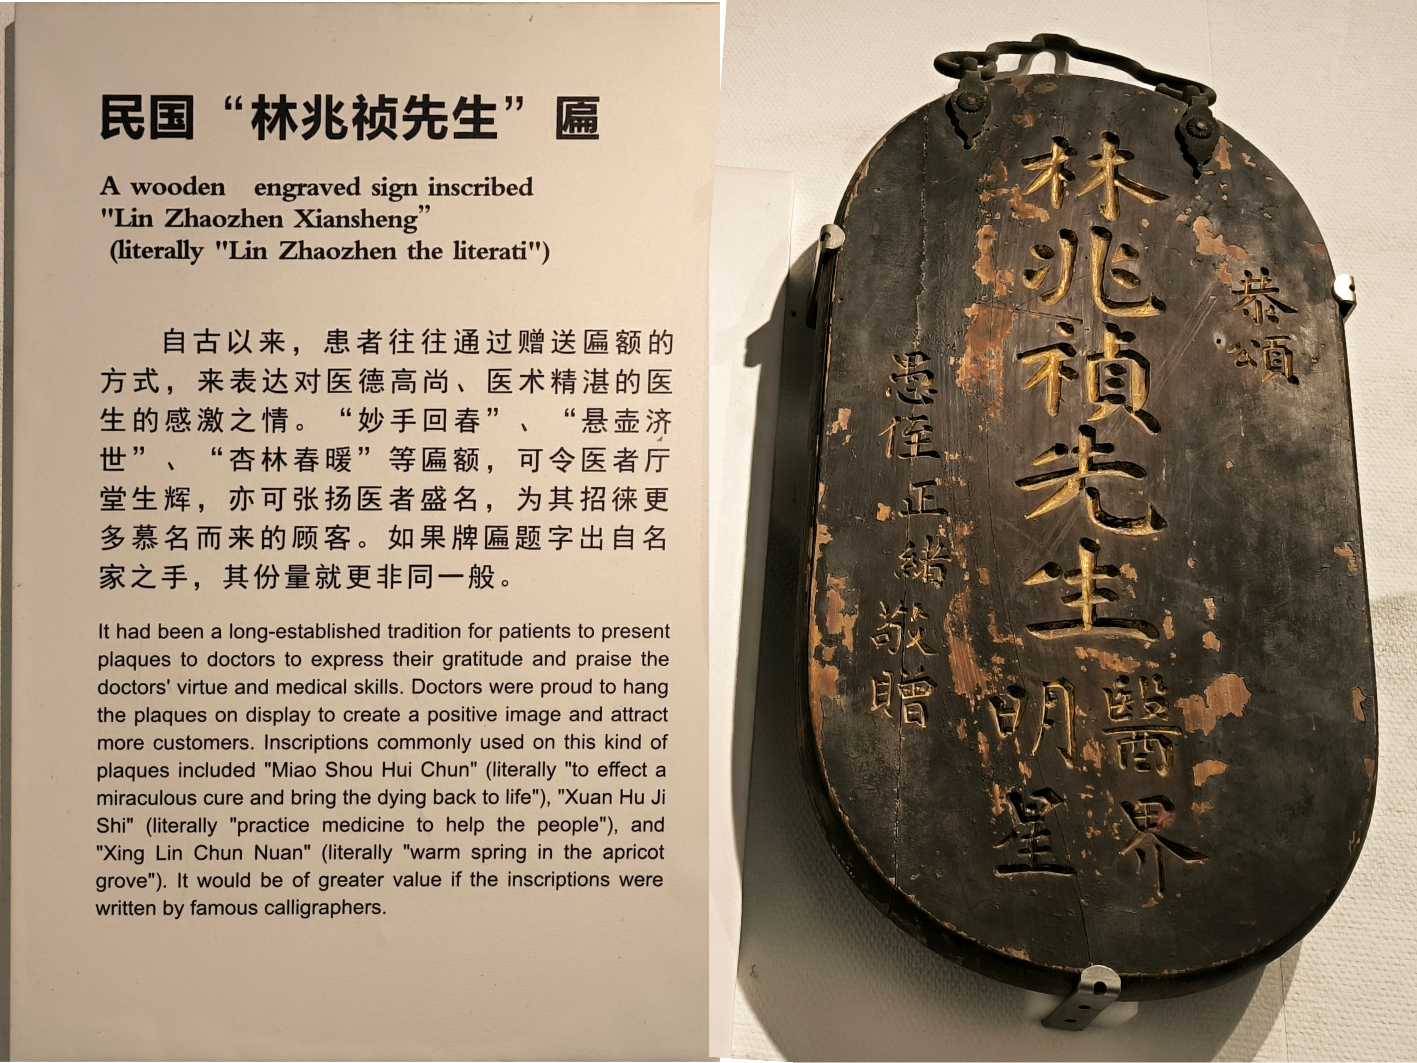 民国“林兆祯先生”匾
A wooden engraved sign inscribed
"Lin Zhaozhen Xiansheng”
(literally "Lin Zhaozhen the literati")
自古以来，患者往往通过赠送匾额的
方式，来表达对医德高尚、医术精湛的医
生的感激之情。“妙手回春”、“悬壶济
世”、“杏林春暖”等匾额，可令医者厅
堂生辉，亦可张扬医者盛名，为其招徕更
多慕名而来的顾客。如果牌匾题字出自名
家之手，其份量就更非同一般。
It had been a long-established tradition for patients to present
plaques to doctors to express their gratitude and praise the
doctors' virtue and medical skills. Doctors were proud to hang
the plaques on display to create a positive image and attract
more customers. Inscriptions commonly used on this kind of
plaques included "Miao Shou Hui Chun" (literally "to effect a
miraculous cure and bring the dying back to life"), "Xuan Hu Ji
Shi" (literally "practice medicine to help the people"), and
"Xing Lin Chun Nuan" (literally "warm spring in the apricot
grove"). It would be of greater value if the inscriptions were
written by famous calligraphers.
恭頌
林兆禎先生
醫界
明星
愚侄正緒敬贈